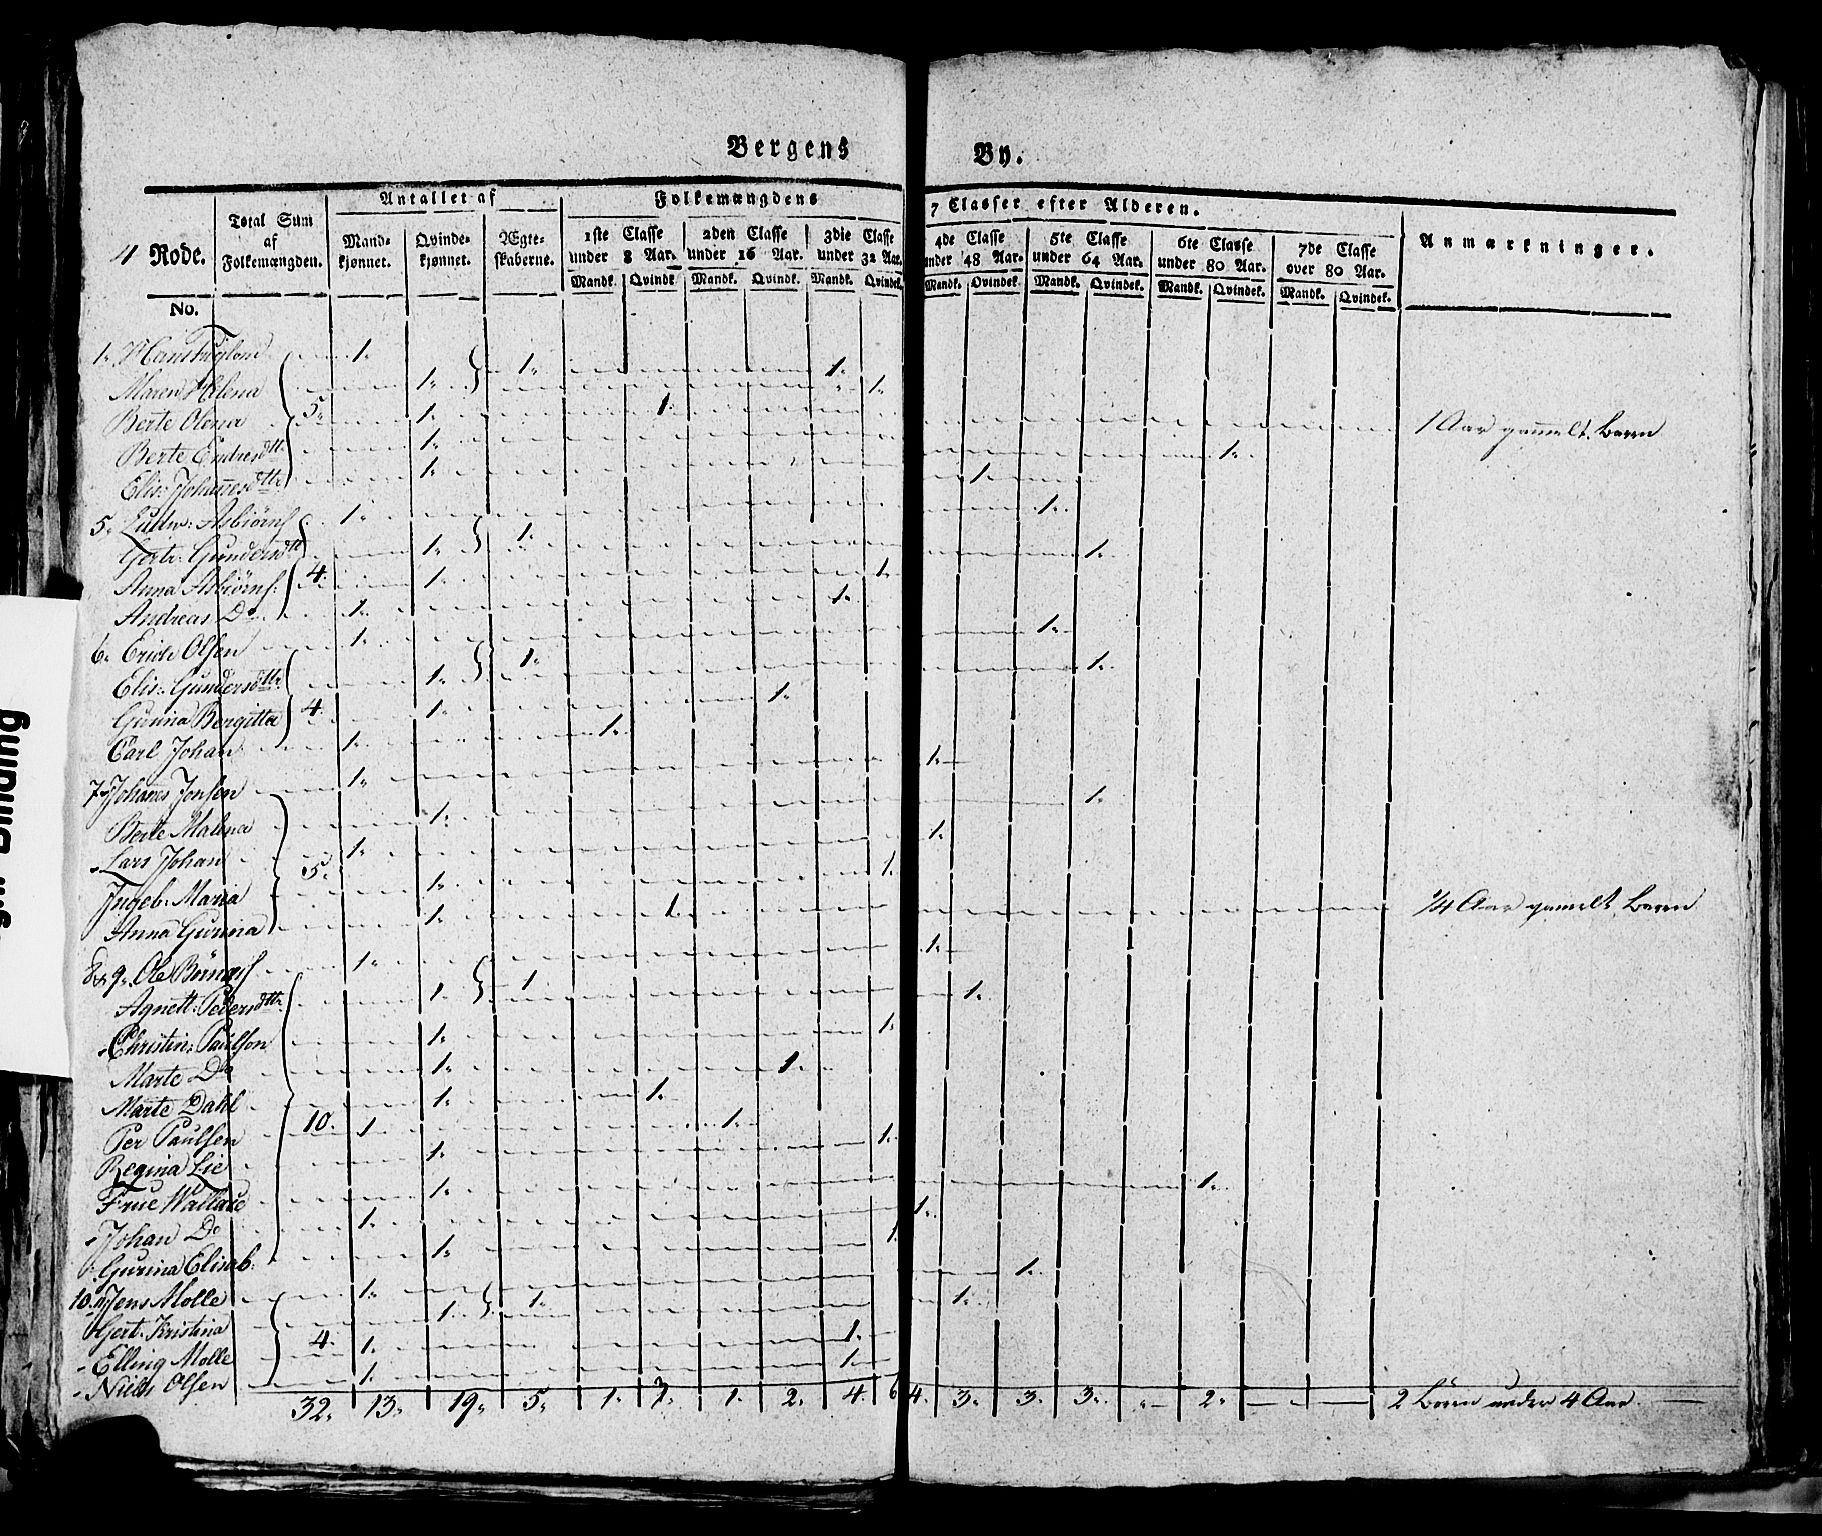 Bergens By.
4 Rode. Total Sum af Folkemængden. Antallet af Mandkjønnet. Qvindekjønnet. Ægteskaberne. Folkemængdens 7 Classer efter Alderen. Anmærkninger.
1ste Classe under 8 Aar. 2den Classe under 16 Aar. 3die Classe under 32 Aar. 4de Classe under 48 Aar. 5te Classe under 64 Aar. 6te Classe under 80 Aar. 7de Classe over 80 Aar.
Mandk. Qvindk. Mandk. Qvindk. Mandk. Qvindek. Mandk. Qvindek. Mandk. Qvindek. Mandk. Qvindek. Mandk. Qvindek.
No.
1. Hans 1. 1. 1.
Maren Helena 1. 1.
Berte Olena 5. 1. 1. 1 Aar gamelt Barn
Berte Endresdttr 1. 1.
Elis: Johanesdttr 1. 1.
5. Ludv: Asbiörns 1. 1. 1.
Gertr: Gundersdtt 1. 1.
Anna Asbiörns: 4. 1. 1.
Andreas Do 1. 1.
6. Erich Olsen 1. 1. 1.
Elis: Gundersdttr 1. 1.
Gurina Bergitta 4. 1. 1.
Carl Johan 1. 1.
7. Johanes Jonsen 1. 1.
Berte Malena 1. 1.
Lars Johan 5. 1. 1.
Ingeb: Maria 1. 1.
Anna Gurina 1. 1. 1/4 Aar gamelt Barn
8 & 9. Ole 1. 1 1.
Agnett: Pedersdttr 1. 1.
Christin: Paulson 1. 1.
Marte Do 1. 1.
Marte Dahl 1. 1.
Per Paulsen 10. 1. 1.
Regina Lie 1. 1.
Frue Wallace 1. 1.
Johan Do 1. 1.
Gurina Elisab: 1. 1.
10. Jens Molle 1. 1. 1.
Gert: Kristina 1. 1.
Elling Molle 4. 1. 1.
Niels Olsen 1. 1.
32. 13. 19. 5. 1. 1. 2. 4. 6 4. 3. 3. 3. 2. 2 Börn under 4 Aar